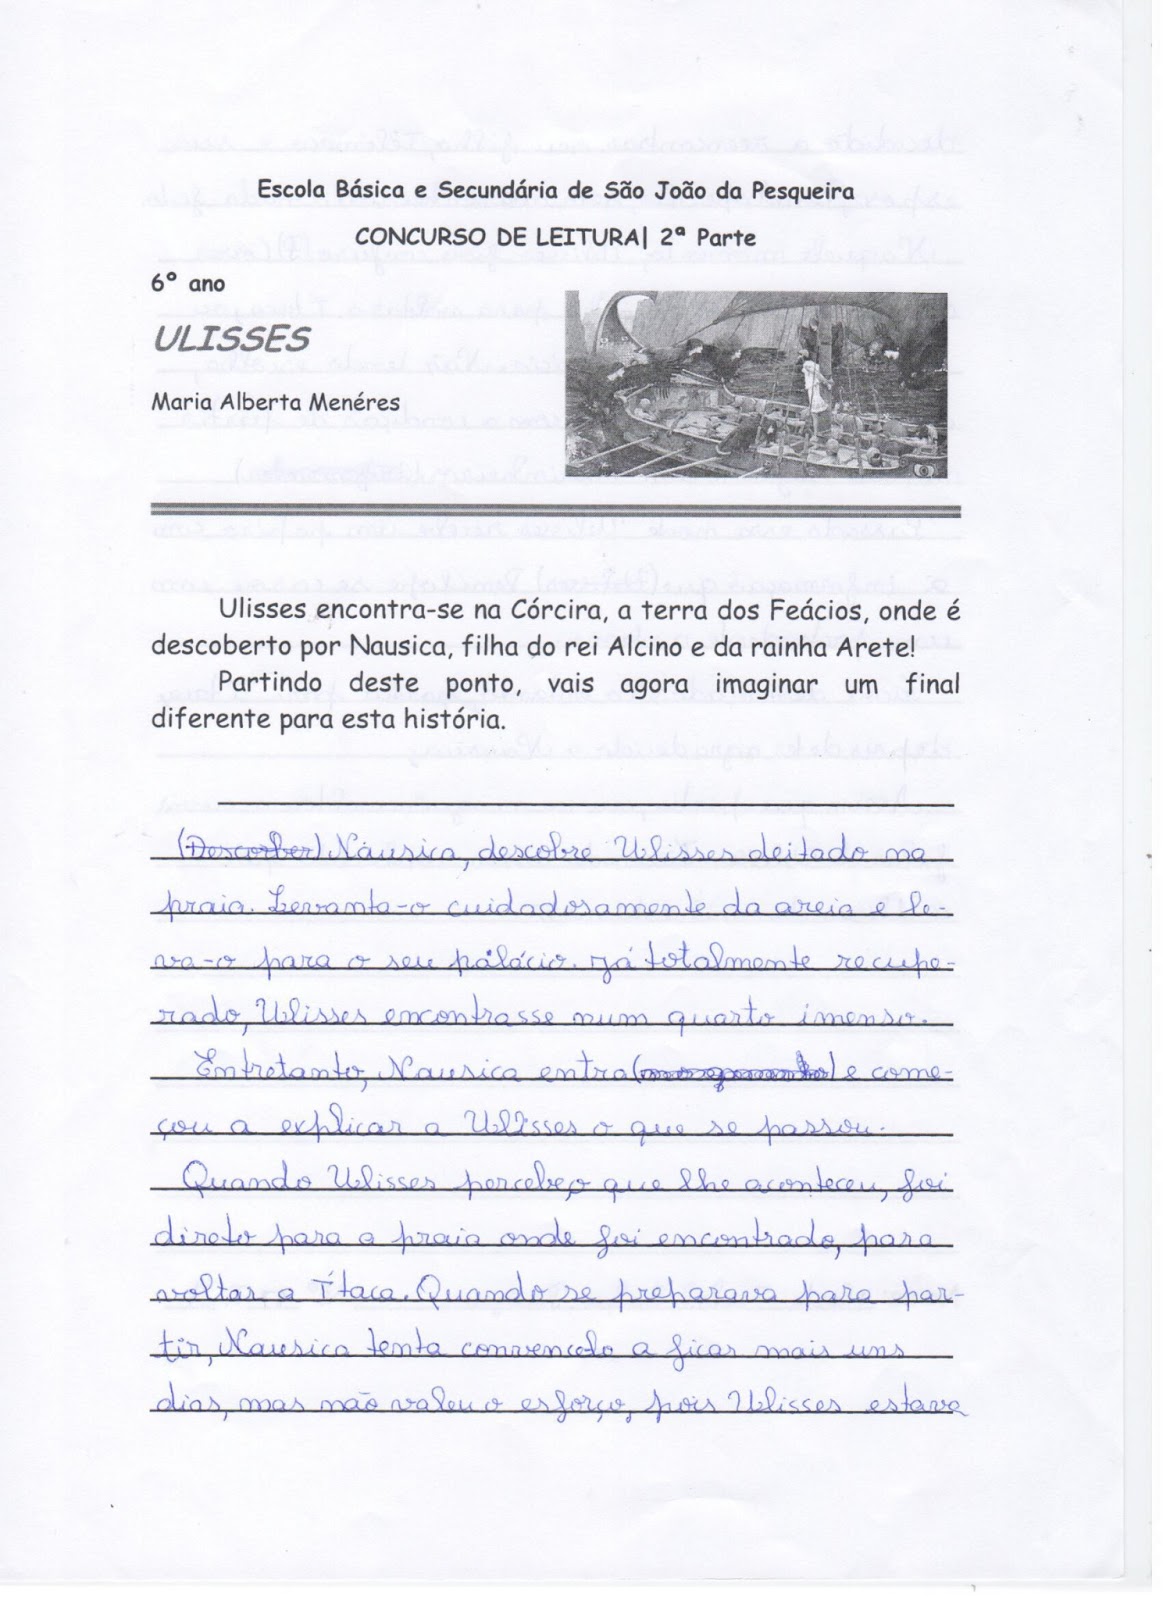 Escola Básica e Secundária de São João da Pesqueira
CONCURSO DE LEITURA| 2ª Parte
6º ano
ULISSES
Maria Alberta Menéres
Ulisses encontra-se na Córcira, a terra dos Feácios, onde é
descoberto por Nausica, filha do rei Alcino e da rainha Arete!
Partindo deste ponto, vais agora imaginar um final
diferente para esta história.
(Descorber) Náusica, descobre Ulisses deitado na
praia. Levanta-o cuidadosamente da areia e le-
va-o para o seu palácio. Já totalmente recupe-
rado, Ulisses encontrasse num quarto imenso.
Entretanto, Nausica entra () e come-
çou a explicar a Ulisses o que se passou.
Quando Ulisses percebeo que lhe aconteceu, foi
direto para a praia onde foi encontrado, para
voltar a Ítaca. Quando se preparava para par-
tir, Nausica tenta convencelo a ficar mais uns
dias, mas não valeu o esforço, pois Ulisses estava